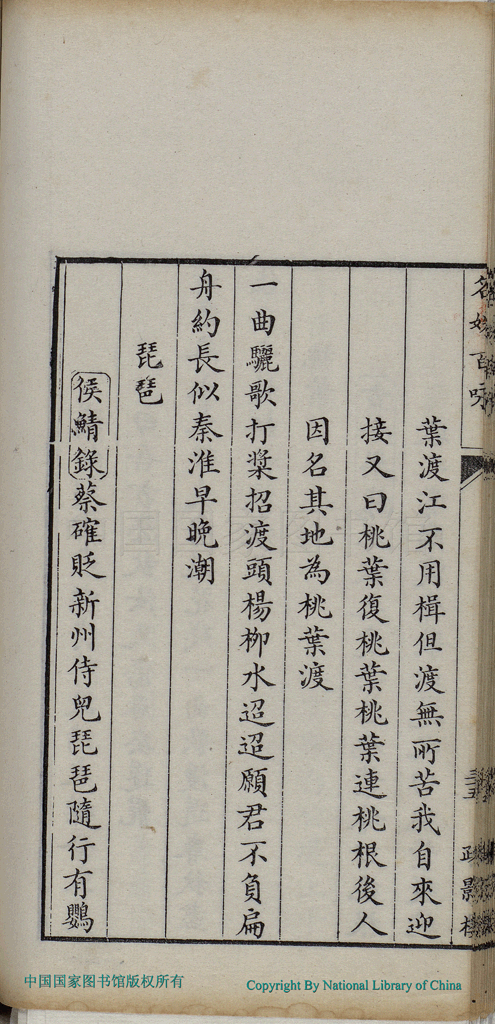 名妓百咏
三五
疏影樓
葉渡江不用楫但渡無所苦我自來迎
接又曰桃葉復桃葉桃葉連桃根後人
因名其地為桃葉渡
一曲驪歌打槳招渡頭楊柳水迢迢願君不負扁
舟約長似秦淮早晚潮
琵琶
侯鯖錄蔡確貶新州侍兒琵琶隨行有鸚
中国国家图书馆版权所有
Copyright By National Library of China